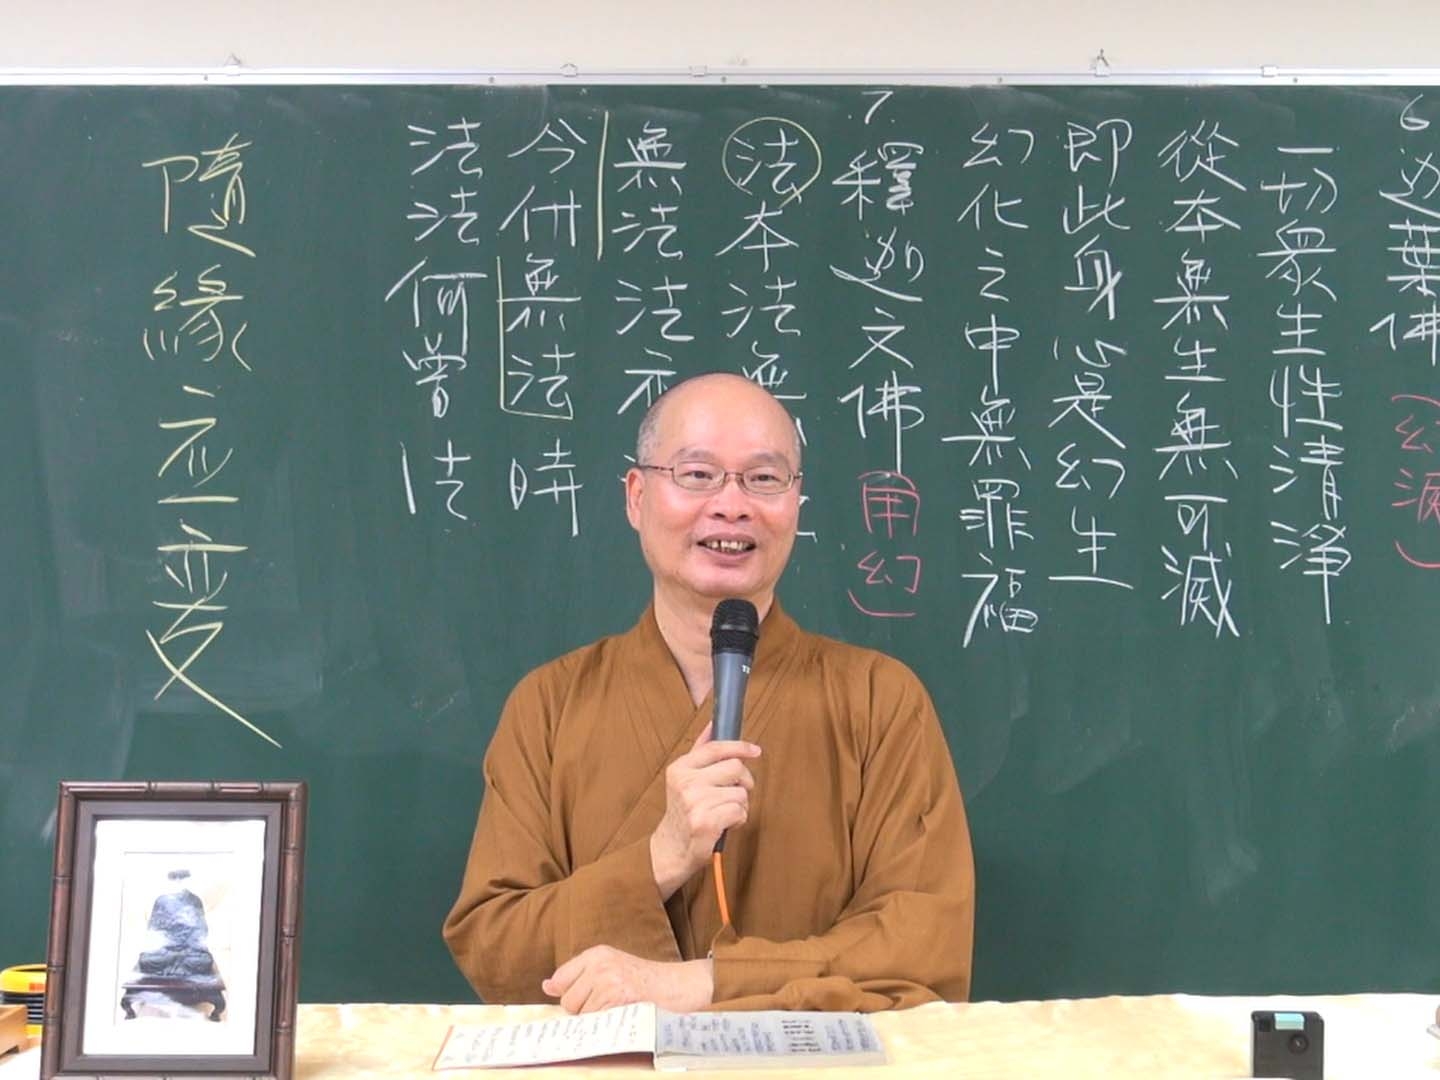 6 迦葉佛(幻滅)
一切眾生性清淨
從本無生無可滅
即此身心是幻生
幻化之中無罪福
7. 釋迦文佛(用幻)
法本法無
無法法亦
今付無法時
法法何曾法
隨緣应变